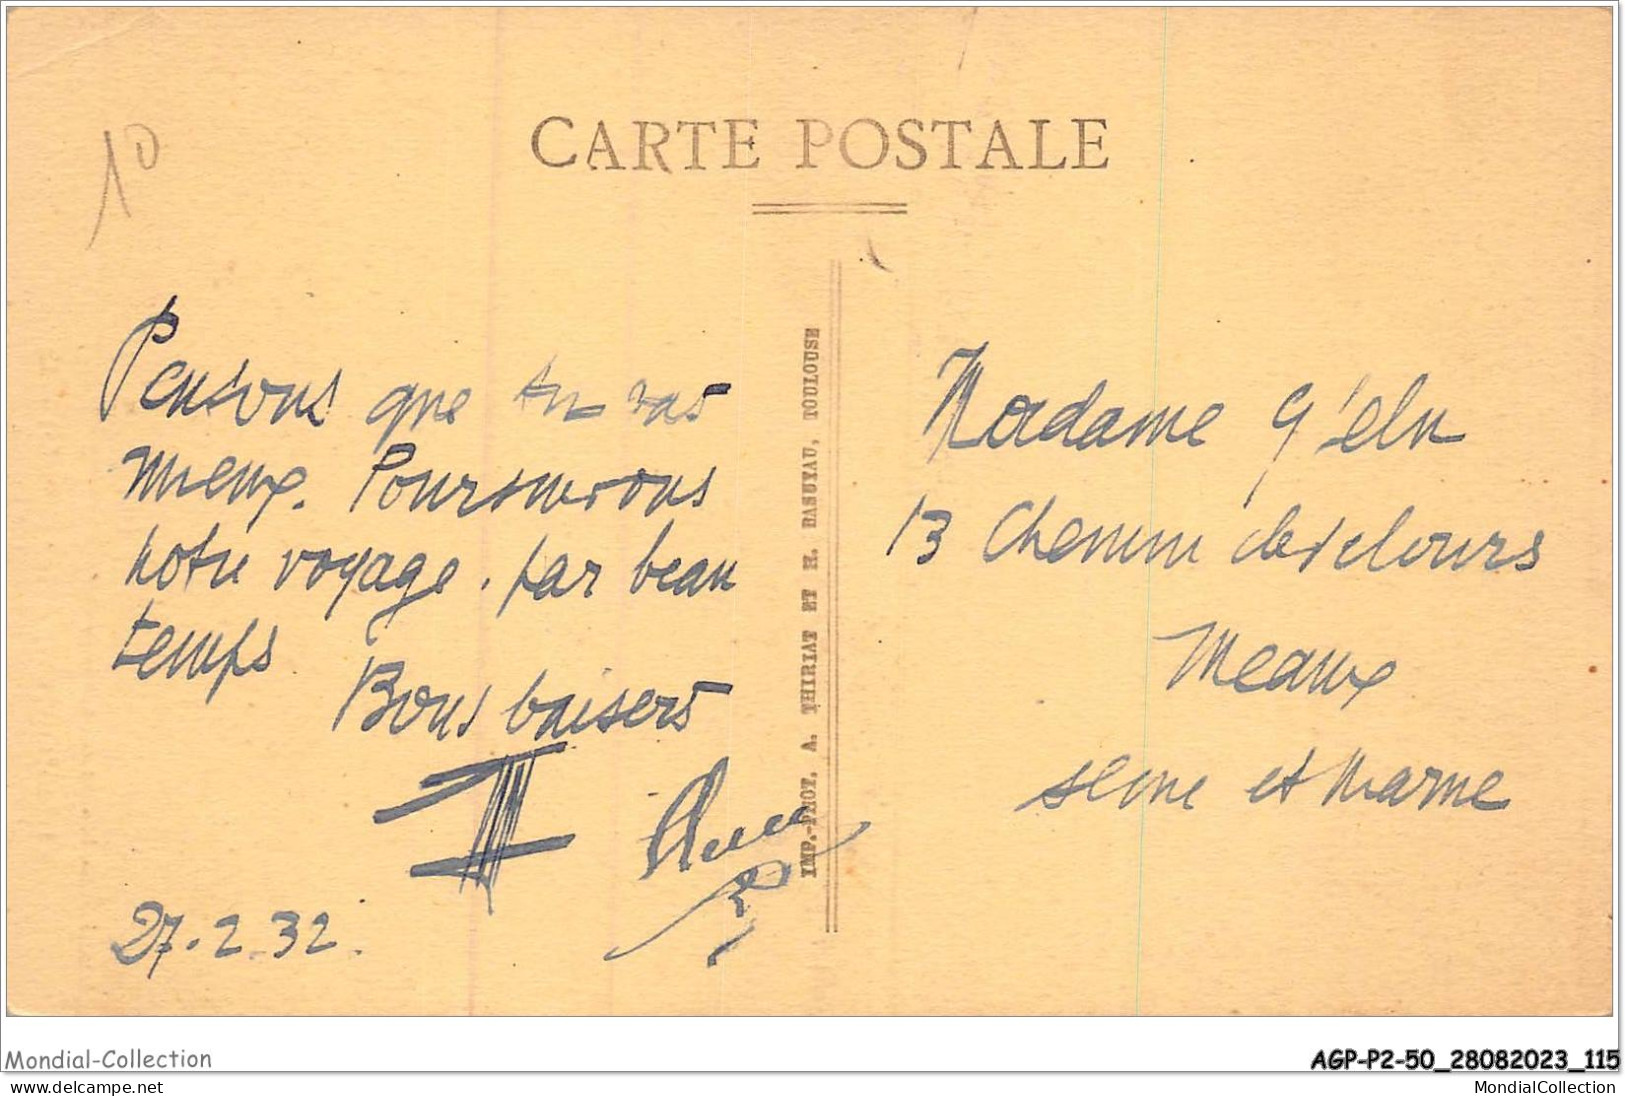 CARTE POSTALE
10
Pensons que tu vas
mieux. Poursuivons
notre voyage. par beau
temps
Bons baisers
27.2.32.
IMP.-PHOT. A. THIRIAT ET H. BASUYAU, TOULOUSE
Madame
13 Chemin des
Meaux
seine et Marne
Mondial-Collection
www.delcampe.net
AGP-P2-50_28082023_115
MondialCollection